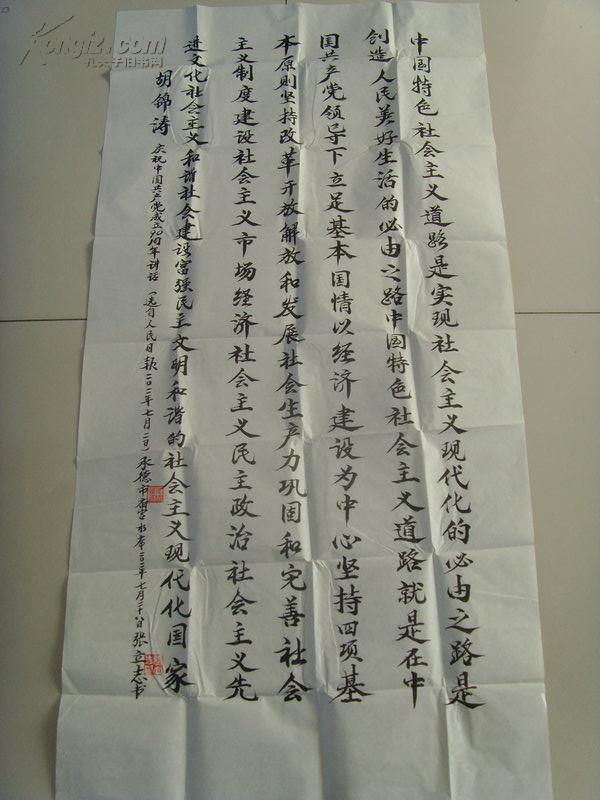 中国特色社会主义道路是实现社会主义现代化的必由之路是
创造人民美好生活的必由之路中国特色社会主义道路就是在中
国共产党领导下立足基本国情以经济建设为中心坚持四项基
本原则坚持改革开放解放和发展社会生产力巩固和完善社会
主义制度建设社会主义市场经济社会主义民主政治社会主义先
进文化社会主义和谐社会建设富强民主文明和谐的社会主义现代化国家
胡锦涛 庆祝中国共产党成立90周年讲话(选自人民日报二〇一一年七月二日)承德市 二〇一一年七月二十八日张立志书
Kongfz.com
孔夫子旧书网